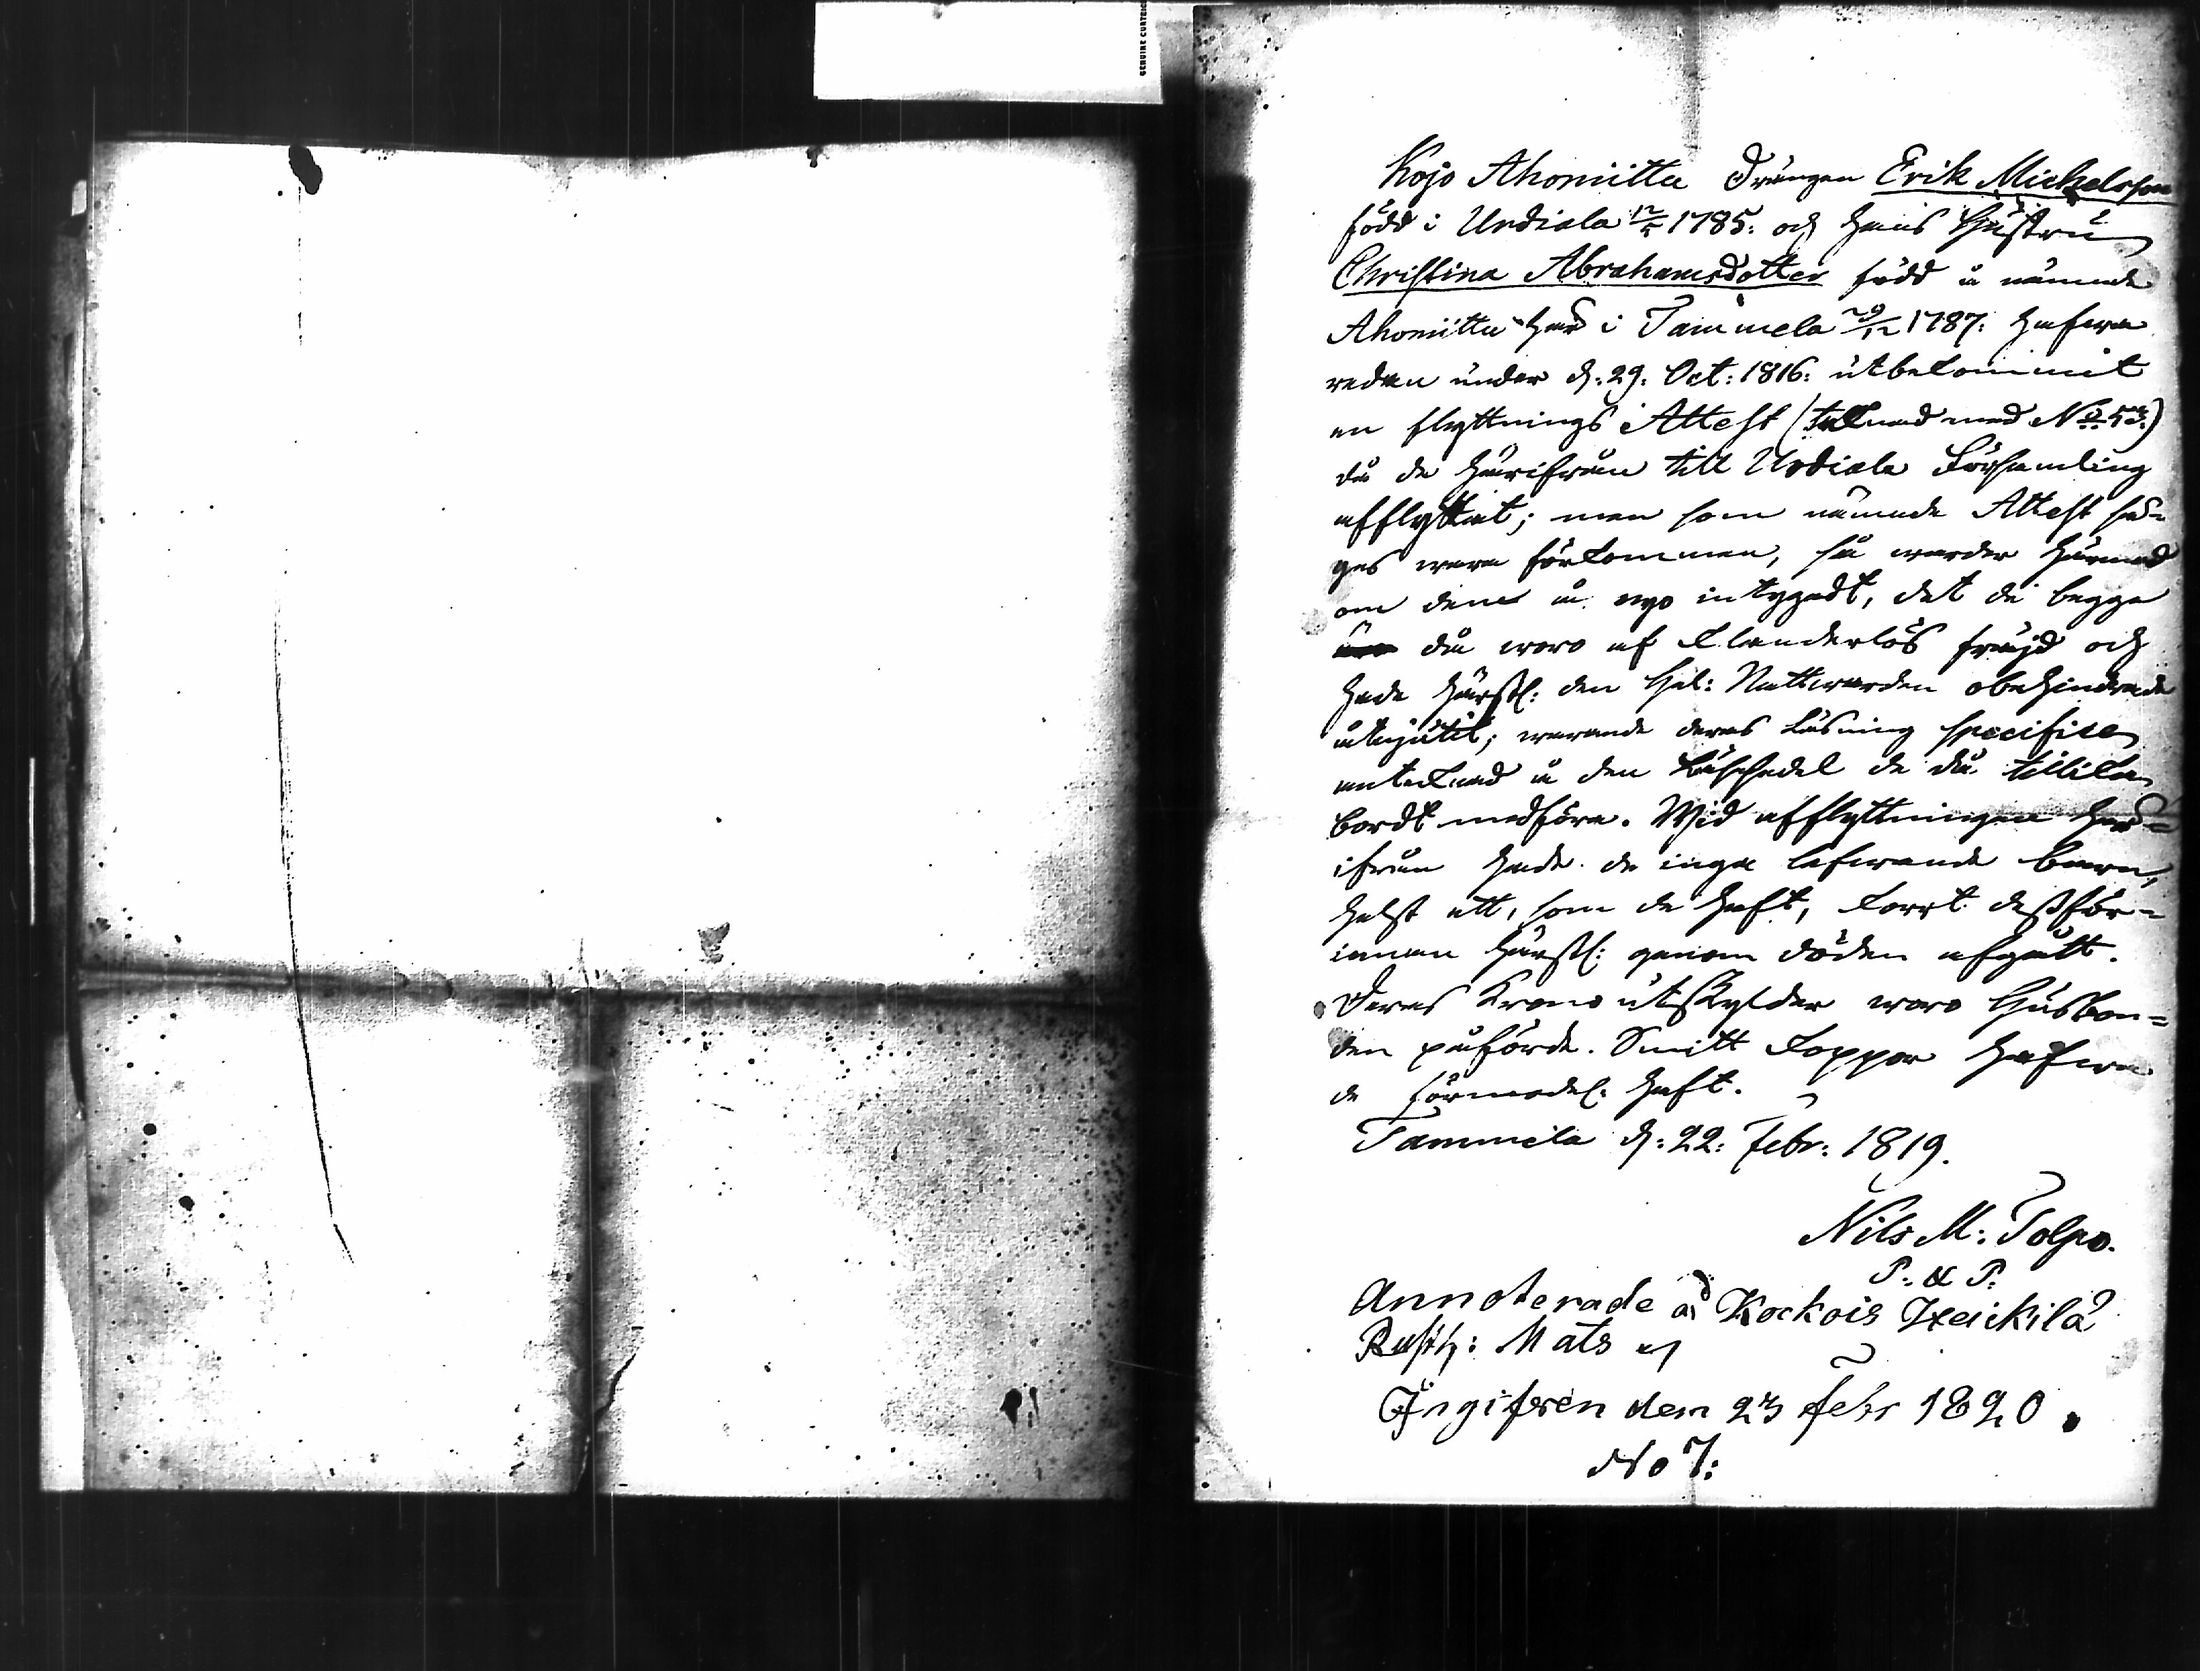 GENUINE CURTEICH
Kojo Ahoniittu Drängen Erik Michelsson
född i Urdiala 12/5 1785: och hans Hustru
Christina Abrahamsdotter född å nämnde
Ahoniittu här i Tammela 29/12 1787: hafwa
redan under d: 29: Oct: 1816: utbekommit
en flyttnings Attest (teknad med No 53)
då de härifrån till Urdiala Församling
afflyttat; men som nämnde Attest sä-
ges wara förkommen, så warder härmed
om dem å nyo intygadt, det de begge
då woro af klanderlös fräjd och
hade härst: den Hel: Nattwarden obehindrade
åtnjutit; warande deras Läsning specifice
antecknad å den Läsesedel de då tillika
bordt medföra. Wid afflyttningen här-
ifrån hade de inga lefwande barn,
helst ett, som de haft, kort dessför-
innan härst: genom döden afgått.
Deras Krono utskylder woro Husbon-
den påförde. Smitt koppor hafwa
de förmodel. haft.
Tammela d: 22: Febr: 1819.
Nils M: Tolpo.
P: & P:
Annoterade ad Kockois Heickilä
Rusth: Mats
Ingifven dem 23 Febr 1820.
No 7: